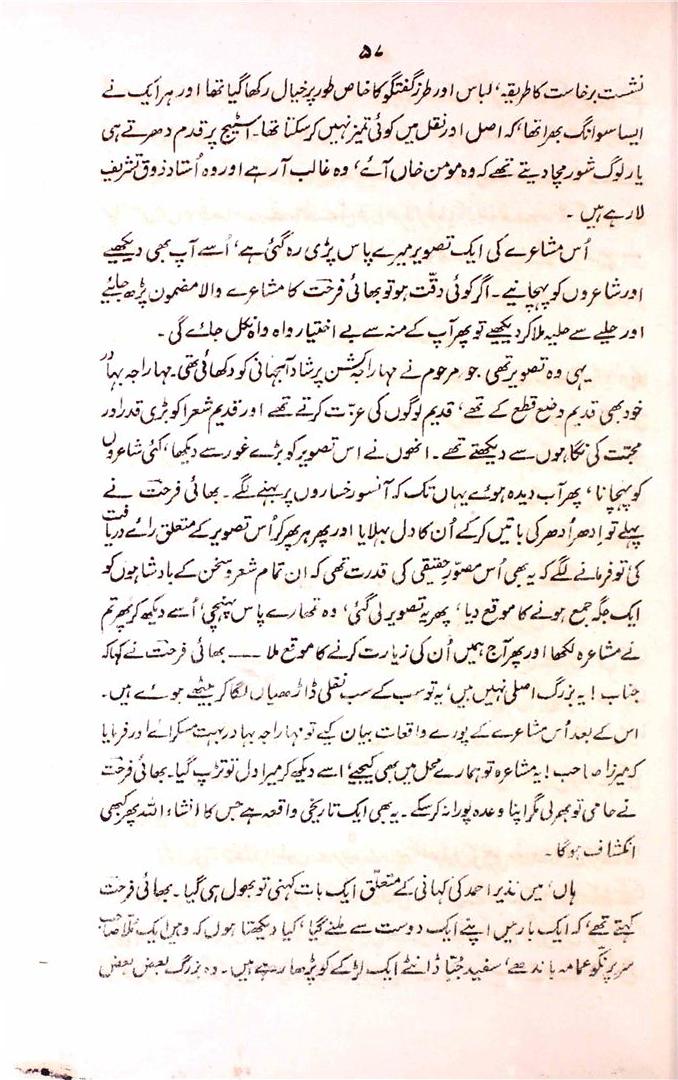 ۵۷
نشست برخاست کا طریقہ، لباس اور طرز گفتگو کا خاص طور پر خیال رکھا گیا تھا اور ہر ایک نے
ایسا سوانگ بھرا تھا، کہ اصل اور نقل میں کوئی تمیز نہیں کر سکتا تھا۔ اسٹیج پر قدم دھرتے ہی
یار لوگ شور مچا دیتے تھے کہ وہ مومن خاں آئے، وہ غالب آ رہے اور وہ اُستاد ذوق تشریف
لا رہے ہیں ۔
اُس مشاعرے کی ایک تصویر میرے پاس پڑی رہ گئی ہے، اُسے آپ بھی دیکھیے
اور شاعروں کو پہچانیے۔ اگر کوئی دقّت ہو تو بھائی فرحت کا مشاعرے والا مضمون پڑھ جائیے
اور حلیے سے حلیہ ملا کر دیکھیے تو پھر آپ کے منہ سے بے اختیار واہ واہ نکل جائے گی ۔
یہی وہ تصویر تھی ۔ جو مرحوم نے مہاراجہ کشن پرشاد آنجہانی کو دکھائی تھی۔ مہاراجہ بہادر
خود بھی قدیم وضع قطع کے تھے، قدیم لوگوں کی عزت کرتے تھے اور قدیم شعرا کو بڑی قدر اور
محبت کی نگاہوں سے دیکھتے تھے ۔ انھوں نے اس تصویر کو بڑے غور سے دیکھا، کئی شاعروں
کو پہچانا، پھر آب دیدہ ہوئے یہاں تک کہ آنسو رخساروں پر بہنے لگے ۔ بھائی فرحت نے
پہلے تو اِدھر اُدھر کی باتیں کر کے اُن کا دل بہلایا اور پھر ہر پھر کر اُس تصویر کے متعلق رائے دریافت
کی تو فرمانے لگے کہ یہ بھی اُس مصوّرِ حقیقی کی قدرت تھی کہ ان تمام شعر و سخن کے بادشاہوں کو
ایک جگہ جمع ہونے کا موقع دیا، پھر یہ تصویر لی گئی، وہ تمھارے پاس پہنچی، اُسے دیکھ کر پھر تم
نے مشاعرہ لکھا اور پھر آج ہمیں اُن کی زیارت کرنے کا موقع ملا ــــ بھائی فرحت نے کہا کہ
جناب ! یہ بزرگ اصلی نہیں ہیں، یہ تو سب کے سب نقلی ڈاڑھیاں لگا کر بیٹھے ہوئے ہیں ۔
اس کے بعد اُس مشاعرے کے پورے واقعات بیان کیے تو مہاراجہ بہادر بہت مسکرائے اور فرمایا
کہ میرزا صاحب ! یہ مشاعرہ تو ہمارے محل میں بھی کیجیے، اسے دیکھ کر میرا دل تو تڑپ گیا۔ بھائی فرحت
نے حامی تو بھر لی مگر اپنا وعدہ پورا نہ کر سکے ۔ یہ بھی ایک تاریخی واقعہ ہے جس کا انشاء اللہ پھر کبھی
انکشاف ہوگا ۔
ہاں، میں نذیر احمد کی کہانی کے متعلّق ایک بات کہنی تو بھول ہی گیا ۔ بھائی فرحت
کہتے تھے، کہ ایک بار میں اپنے ایک دوست سے ملنے گیا، کیا دیکھتا ہوں کہ وہیں ایک مُلّا صاحب
سر پر عمامہ باندھے، سفید جُبّا ڈانٹے ایک لڑکے کو پڑھا رہے ہیں ۔ وہ بزرگ بعض بعض